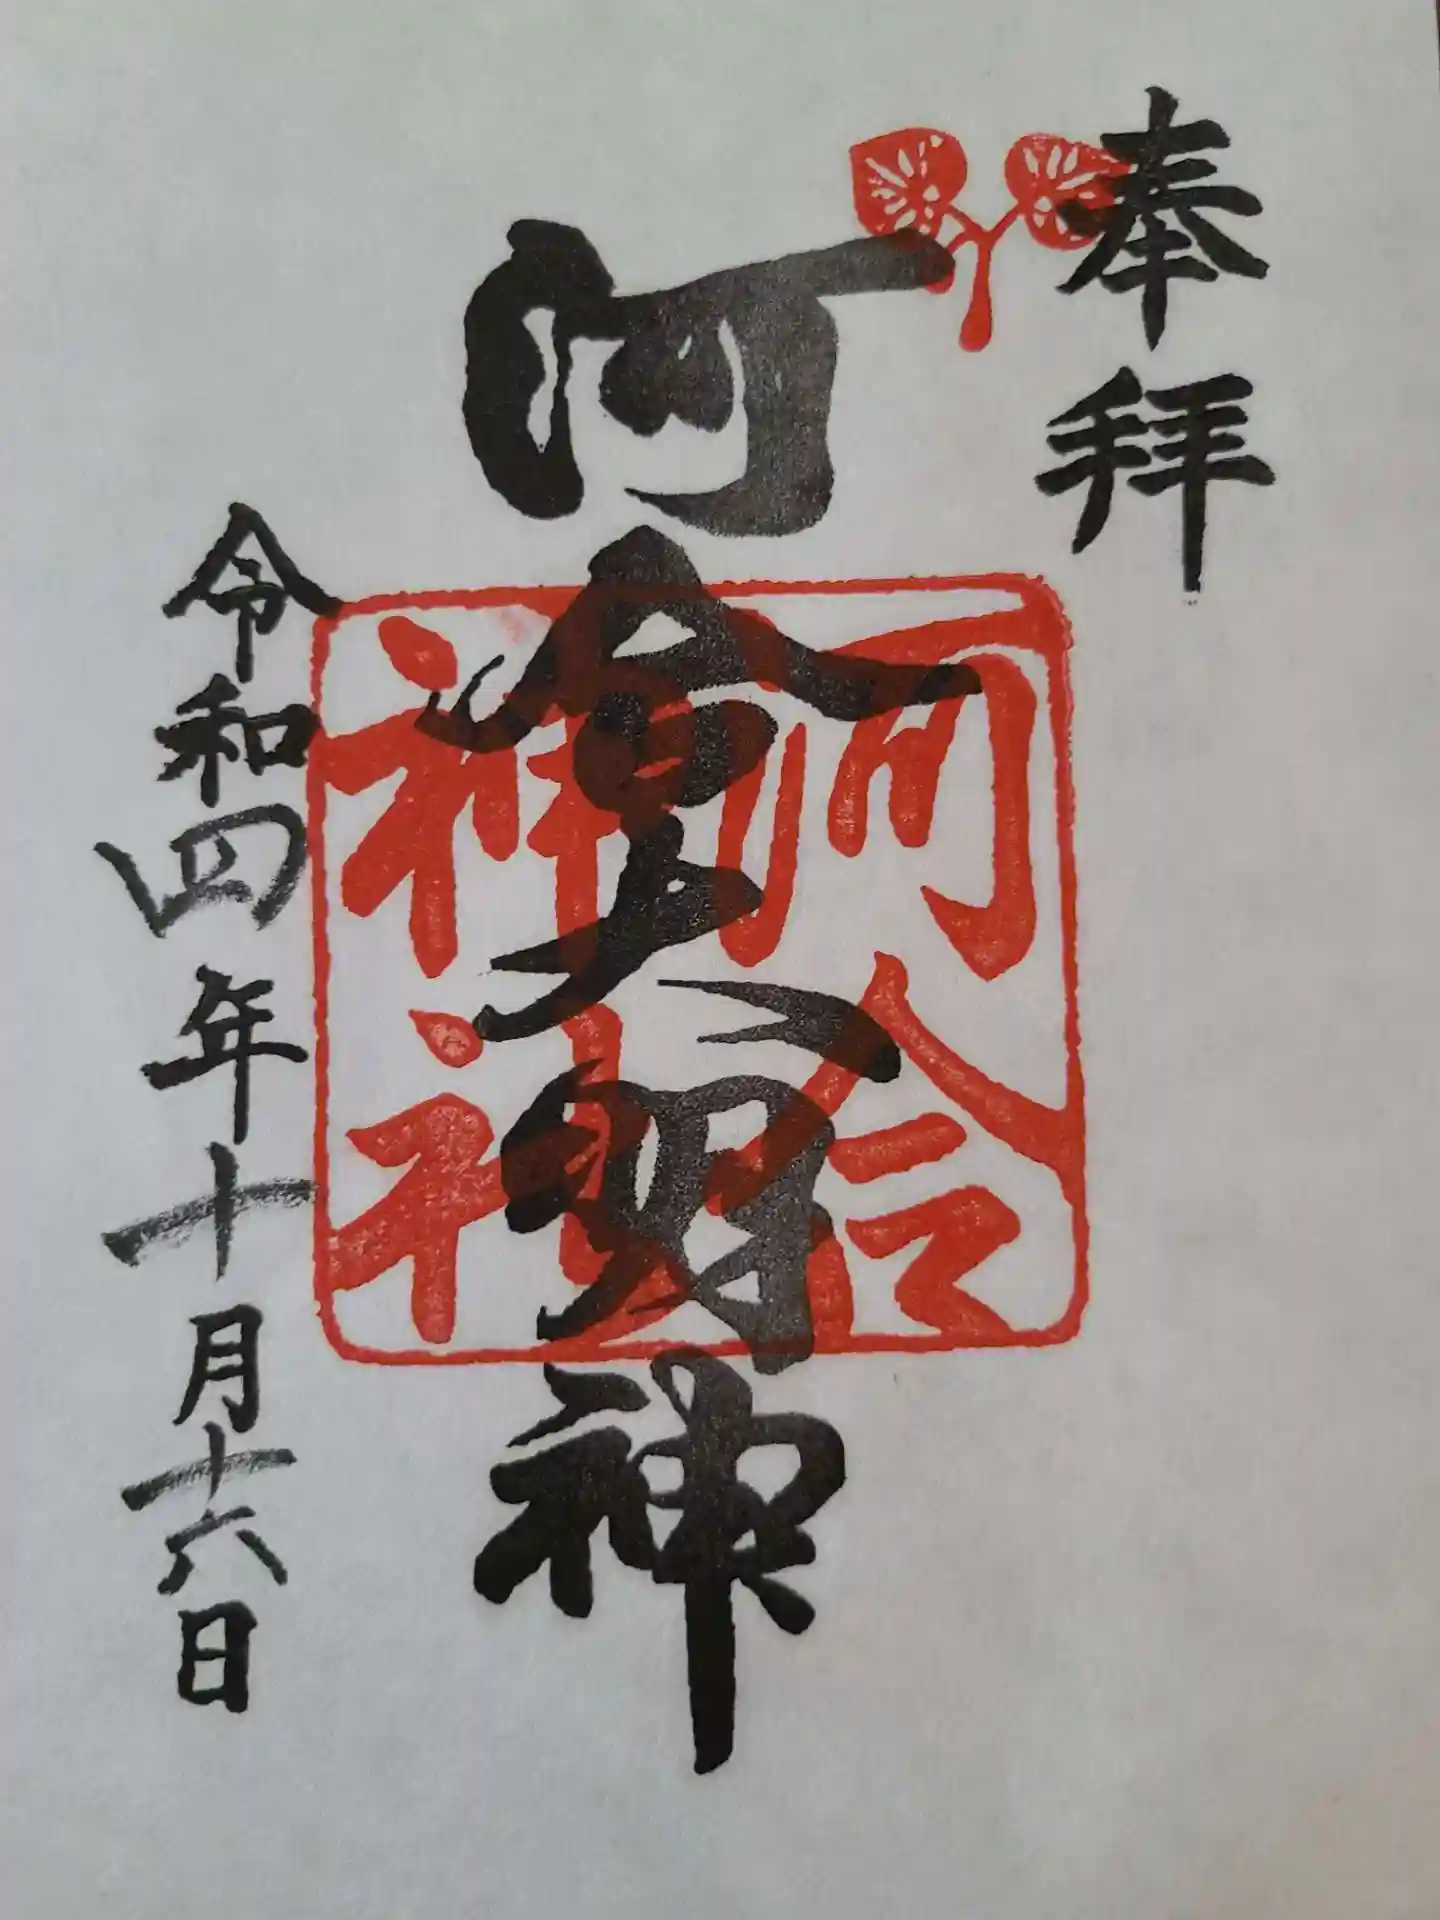 奉拝
河會大明神
河合
神社
令和四年十月十六日